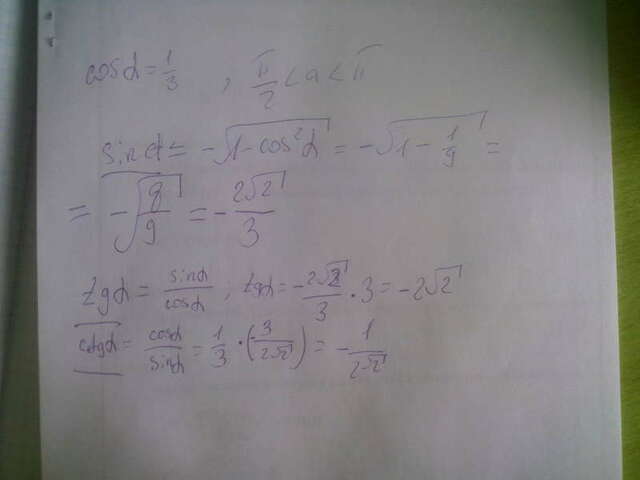 cosα = 1/3 , π/2 < a < π
sinα = -√(1-cos²α) = -√(1 - 1/9) =
= -√(8/9) = -2√2/3
tgα = sinα/cosα ; tgα = -2√2/3 · 3 = -2√2
ctgα = cosα/sinα = 1/3 · (-3/2√2) = -1/2√2